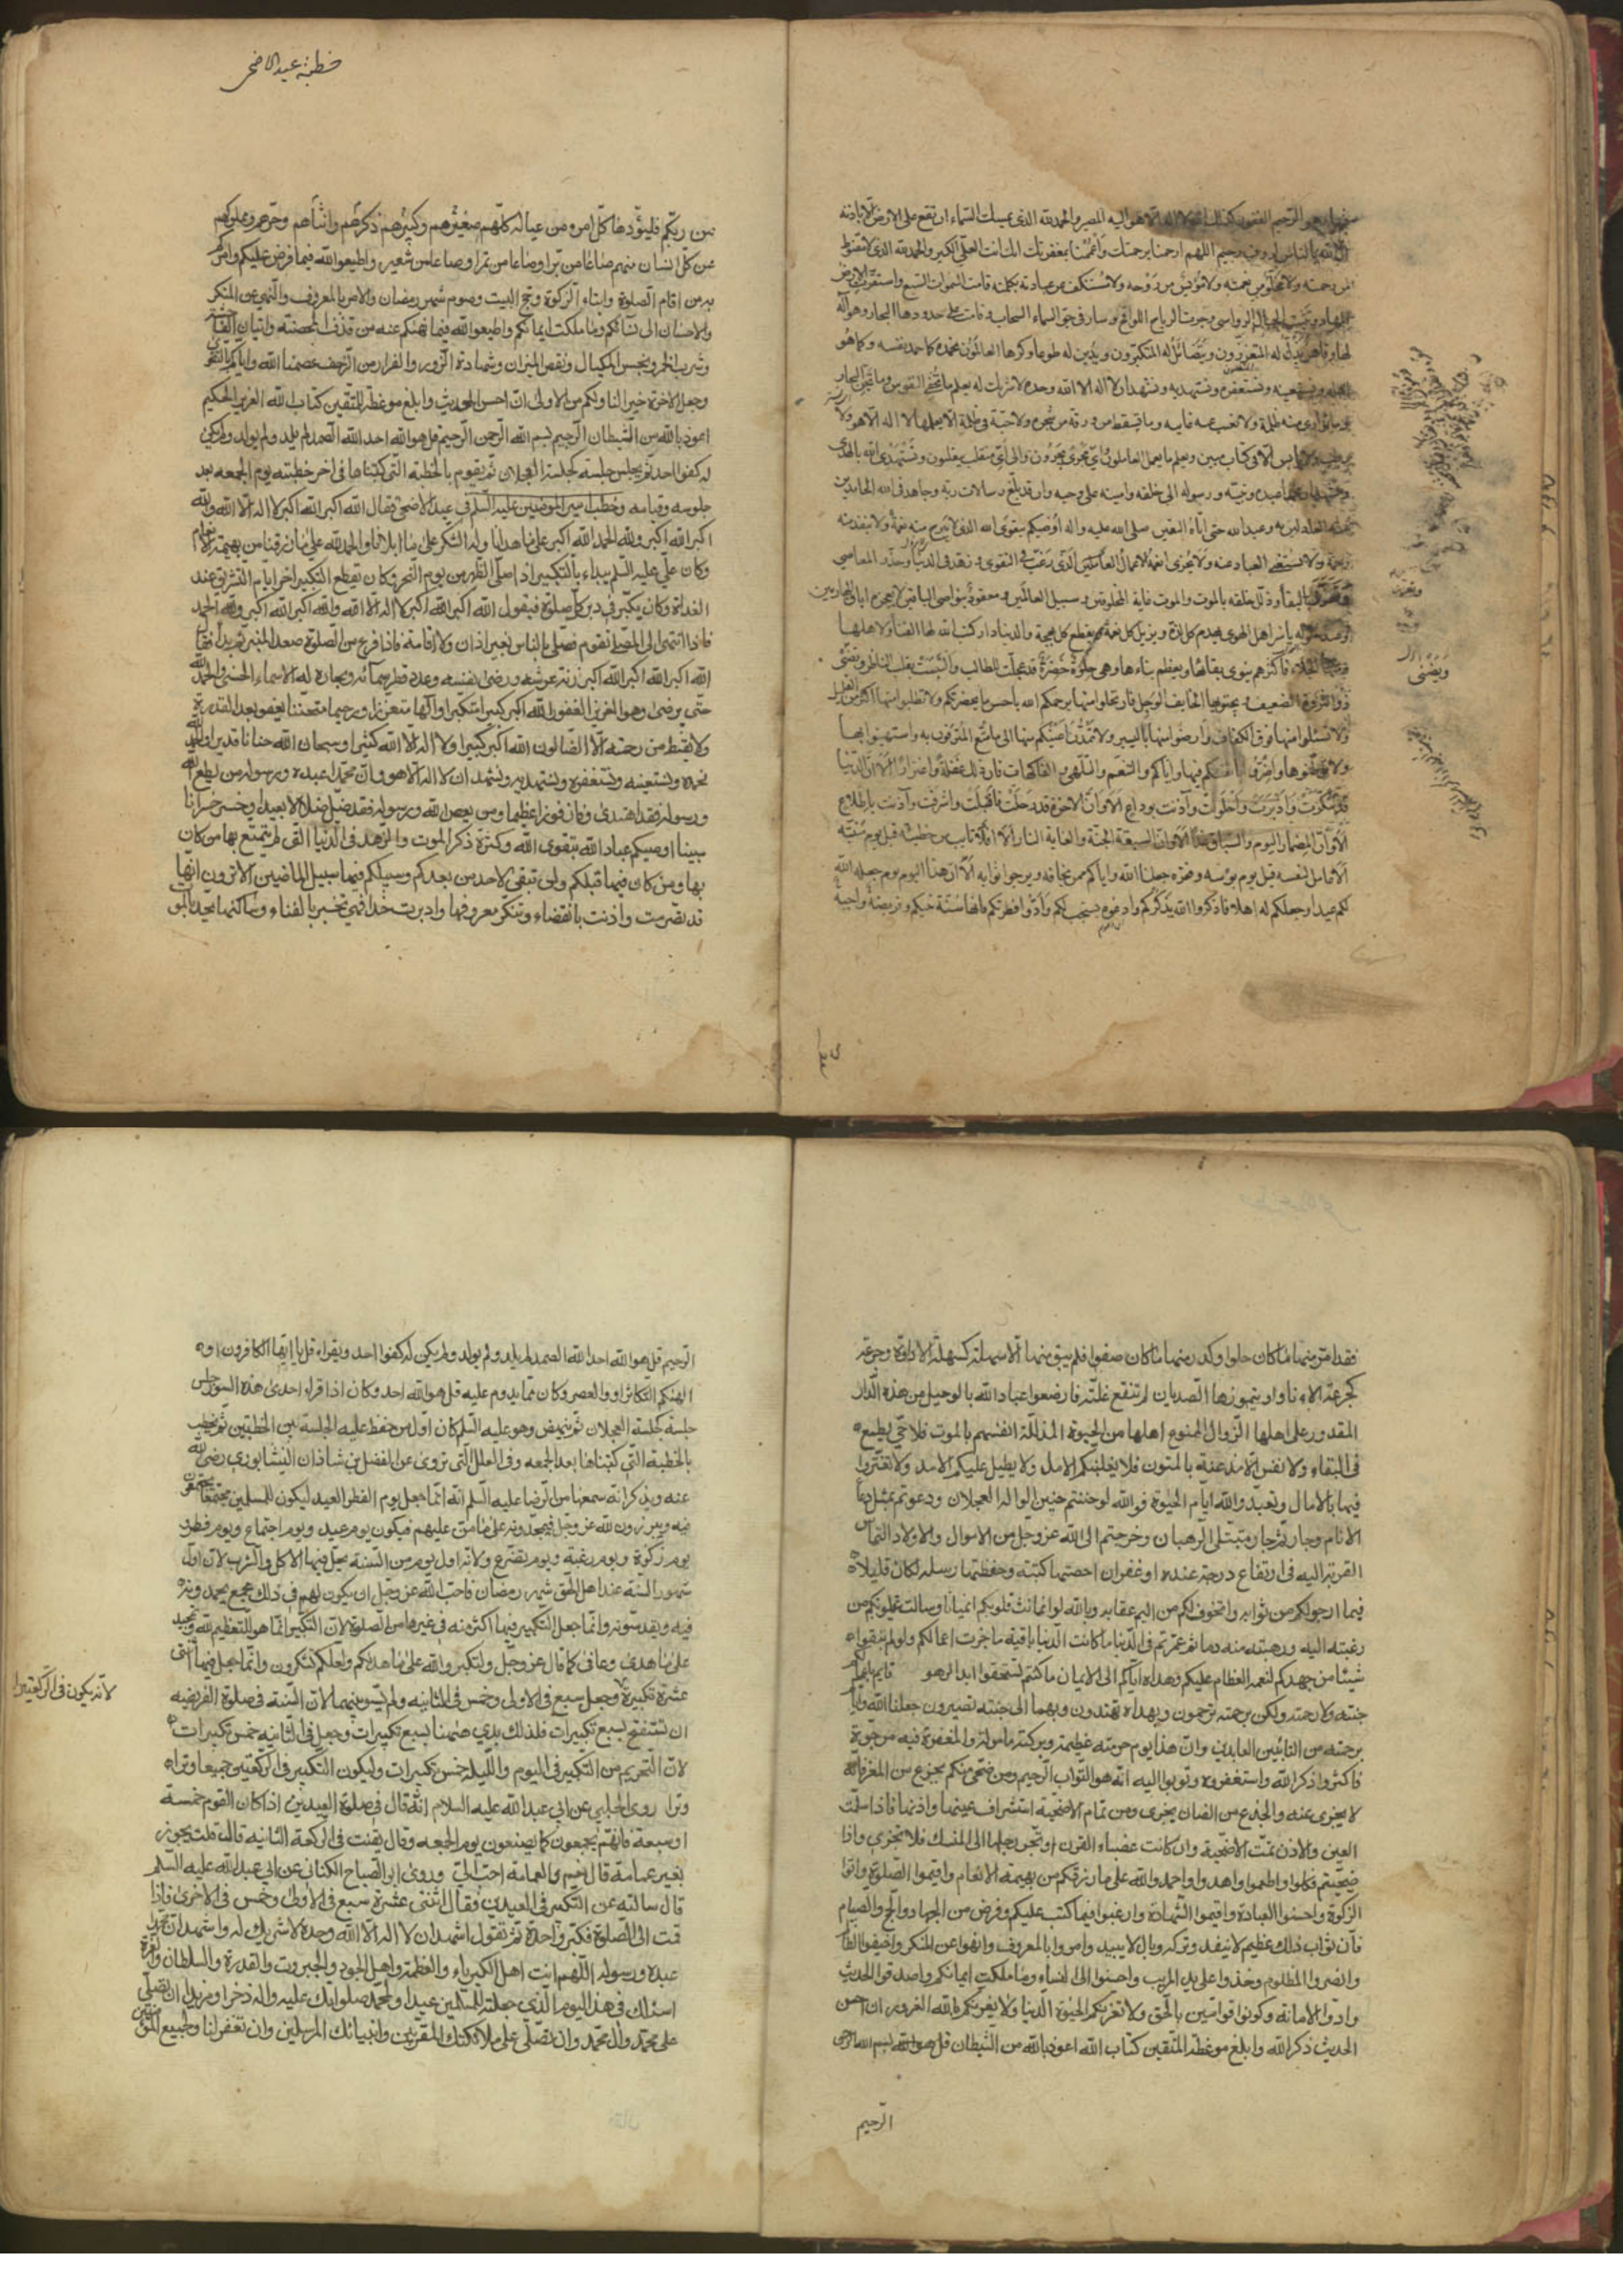 الرحيم الغفور كذلك الله لا اله الا هو اليه المصير والحمد لله الذى يمسك السماء ان تقع على الارض الا باذنه
ان الله بالناس لرؤف رحيم اللهم ارحمنا برحمتك واعممنا بمغفرتك انك انت العلى الكبير والحمد لله الذى لا مقنوط
من رحمته ولا مخلو من نعمته ولا مؤيس من روحه ولا مستنكف عن عبادته بكلمته قامت السموات السبع واستقرت الارض
المهاد وثبتت الجبال الرواسى وجرت الرياح اللواقح وسار فى جو السماء السحاب وقامت على حدودها البحار وهو اله
لها وقاهر يذل له المتعززون ويتضائل له المتكبرون ويدين له طوعا وكرها العالمون نحمده كما حمد نفسه وكما هو
اهله ونستعينه ونستغفره ونستهديه ونشهد ان لا اله الا الله وحده لا شريك له يعلم ما تخفى النفوس وما تجن البحار
وما توارى منه ظلمة ولا تغيب عنه غايبه وما تسقط من ورقة من شجرة ولا حبة فى ظلمة الا يعلمها لا اله الا هو ولا
رطب ولا يابس الا فى كتاب مبين ويعلم ما يعمل العاملون واى مجرى يجرون والى اى منقلب ينقلبون ونستهدى الله بالهدى
ونشهد ان محمدا عبده ونبيه ورسوله الى خلقه وامينه على وحيه وانه قد بلغ رسالات ربه وجاهد فى الله الحايدين
عنه العادلين به وعبد الله حتى اتاه اليقين صلى الله عليه واله اوصيكم بتقوى الله الذى لا تبرح منه نعمة ولا تنفد منه
رحمة ولا يستغنى العباد عنه ولا يجزى انعمه الاعمال العاملين الذى رغب فى التقوى وزهد فى الدنيا وحذر المعاصى
وتعزز بالبقاء وذلل خلقه بالموت والموت غاية المخلوقين وسبيل العالمين ومعقود بنواصى الباقين لا يعجزه اباق الهاربين
وعند حلوله ياسر اهل الهوى يهدم كل لذة ويزيل كل نعمة ويقطع كل بهجة والدنيا دار كتب الله لها الفناء ولاهلها
منها الجلاء فاكثرهم ينوى بقائها ويعظم بناءها وهى حلوة خضرة قد عجلت للطالب والتبست بقلب الناظر وتضنى
ذو الثروة الضعيف ويجتويها الخايف الوجل فارتحلوا منها يرحمكم الله باحسن ما بحضرتكم ولا تطلبوا منها اكثر من القليل
ولا تسئلوا منها فوق الكفاف وارضوا منها باليسير ولا تمدن اعينكم منها الى ما متع المترفون به واستهينوا بها
ولا توطنوها واضروا بانفسكم فيها واياكم والتنعم والتلهى والفاكهات فان فى ذلك غفلة واغترارا الا ان الدنيا
قد تنكرت وادبرت واحلولت وآذنت بوداع الا وان الآخرة قد رحلت فاقبلت واشرفت وآذنت باطلاع
الا وان المضمار اليوم والسباق غدا الا وان السبقة الجنة والغاية النار الا افلا تايب من خطيئته قبل يوم منيته
الا عامل لنفسه قبل يوم بؤسه وفقره جعلنا الله واياكم ممن يخافه ويرجوا ثوابه الا ان هذا اليوم يوم جعله الله
لكم عيدا وجعلكم له اهلا فاذكروا الله يذكركم وادعوه يستجب لكم وادوا فطرتكم فانها سنة نبيكم وفريضة واجبة
خطبة عيد الاضحى
من ربكم فليؤدها كل امرء من عياله كلهم صغيرهم وكبيرهم ذكرهم وانثاهم وحرهم ومملوكهم
عن كل انسان منهم صاعا من بر او صاعا من تمر او صاعا من شعير واطيعوا الله فيما فرض عليكم وامركم
به من اقام الصلوة وايتاء الزكوة وحج البيت وصوم شهر رمضان والامر بالمعروف والنهى عن المنكر
والاحسان الى نسائكم وما ملكت ايمانكم واطيعوا الله فيما نهيكم عنه من قذف المحصنة واتيان الفاحشة
وشرب الخمر وبخس المكيال ونقص الميزان وشهادة الزور والفرار من الزحف عصمنا الله واياكم بالتقوى
وجعل الاخرة خيرا لنا ولكم من الاولى ان احسن الحديث وابلغ موعظة للمتقين كتاب الله العزيز الحكيم
اعوذ بالله من الشيطان الرجيم بسم الله الرحمن الرحيم قل هو الله احد الله الصمد لم يلد ولم يولد ولم يكن
له كفوا احد ثم يجلس جلسة كجلسة العجلان ثم يقوم بالخطبة التى كتبناها فى اخر خطبته يوم الجمعه بعد
جلوسه وقيامه وخطب امير المؤمنين عليه السلم فى عيد الاضحى فقال الله اكبر الله اكبر لا اله الا الله والله
اكبر الله اكبر ولله الحمد الله اكبر على ما هدانا وله الشكر على ما ابلانا والحمد لله على ما رزقنا من بهيمة الانعام
وكان على عليه السلم يبداء بالتكبير اذا صلى الظهر من يوم النحر وكان يقطع التكبير اخر ايام التشريق عند
الغداة وكان يكبر فى دبر كل صلوة فيقول الله اكبر الله اكبر لا اله الا الله والله اكبر الله اكبر ولله الحمد
فاذا انتهى الى المصلى تقدم فصلى بالناس بغير اذان ولا اقامة فاذا فرغ من الصلوة صعد المنبر ثم بدأ فقال
الله اكبر الله اكبر الله اكبر زنة عرشه ورضى نفسه وعدد قطر سمائه وبحاره له الاسماء الحسنى والحمد لله
حتى يرضى وهو العزيز الغفور الله اكبر كبيرا متكبرا والها متعززا ورحيما متحننا يعفو بعد القدرة
ولا يقنط من رحمته الا الضالون الله اكبر كبيرا ولا اله الا الله كثيرا وسبحان الله حنانا قديرا والحمد لله
نحمده ونستعينه ونستغفره ونستهديه ونشهد ان لا اله الا هو وان محمدا عبده ورسوله من يطع الله
ورسوله فقد اهتدى وفاز فوزا عظيما ومن يعص الله ورسوله فقد ضل ضلالا بعيدا وخسر خسرانا
مبينا اوصيكم عباد الله بتقوى الله وكثرة ذكر الموت والزهد فى الدنيا التى لم يتمتع بها من كان
بها ومن كان فيها قبلكم ولن تبقى لاحد من بعدكم وسبيلكم فيها سبيل الماضين الا ترون انها
قد تصرمت واذنت بانقضاء وتنكر معروفها وادبرت حذاء فهى تخبر بالفناء وساكنها يحدى بالموت
فقد امر منها ما كان حلوا وكدر منها ما كان صفوا فلم يبق منها الا سملة كسملة الاداوة وجرعة
كجرعة الاناء او يتمززها الصديان لم تنقع غلته فازمعوا عباد الله بالرحيل من هذه الدار
المقدور على اهلها الزوال الممنوع اهلها من الحيوة المذللة انفسهم بالموت فلا حى يطمع
فى البقاء ولا نفس الا مذعنة بالمنون فلا يغلبنكم الامل ولا يطيل عليكم الامد ولا تغتروا
فيها بالامال وتعبدوا لله ايام الحيوة فوالله لو حننتم حنين الواله العجلان ودعوتم بمثل دعاء
الانام وجارتم جار متبتلى الرهبان وخرجتم الى الله عز وجل من الاموال والاولاد التماس
القربة اليه فى ارتفاع درجة عنده او غفران احصتها كتبته وحفظتها رسله لكان قليلا
فيما ارجو لكم من ثوابه واتخوف لكم من اليم عقابه وبالله لو انماثت قلوبكم انمياثا وسالت عيونكم من
رغبته اليه ورهبته منه دما ثم عمرتم فى الدنيا ما كانت الدنيا باقية ما جزت اعمالكم ولو لم تبقوا
شيئا من جهدكم لنعمه العظام عليكم وهداه اياكم الى الايمان ما كنتم لتستحقوا ابد الدهر قايم باعمالكم
جنته ولا رحمته ولكن برحمته ترحمون وبهداه تهتدون وبهما الى جنته تصيرون جعلنا الله واياكم
برحمته من التائبين العابدين وان هذا يوم حرمته عظيمة وبركته مامولة والمغفرة فيه مرجوة
فاكثروا ذكر الله واستغفروه وتوبوا اليه انه هو التواب الرحيم ومن ضحى منكم بجزع من المعز فانه
لا يجزى عنه والجذع من الضان يجزى ومن تمام الاضحية استشراف عينها واذنها فاذا سلمت
العين والاذن تمت الاضحية وان كانت عضباء القرن او تجر رجلها الى المنسك فلا تجزى واذا
ضحيتم فكلوا واطعموا واهدوا واحمدوا الله على ما رزقكم من بهيمة الانعام واقيموا الصلوة واتوا
الزكوة واحسنوا العبادة واقيموا الشهادة وارغبوا فيما كتب عليكم وفرض من الجهاد والحج والصيام
فان ثواب ذلك عظيم لا ينفد وتركه وبال لا يبيد وامروا بالمعروف وانهوا عن المنكر واخيفوا الظالم
وانصروا المظلوم وخذوا على يد المريب واحسنوا الى النساء وما ملكت ايمانكم واصدقوا الحديث
وادوا الامانة وكونوا قوامين بالحق ولا تغرنكم الحيوة الدنيا ولا يغرنكم بالله الغرور ان احسن
الحديث ذكر الله وابلغ موعظة المتقين كتاب الله اعوذ بالله من الشيطان بسم الله الرحمن
الرحيم
الرحيم قل هو الله احد الله الصمد لم يلد ولم يولد ولم يكن له كفوا احد ويقراء قل يا ايها الكافرون او
الهيكم التكاثر او والعصر وكان مما يدوم عليه قل هو الله احد وكان اذا قراء احدى هذه السور جلس
جلسة كجلسة العجلان ثم ينهض وهو عليه السلم كان اول من حفظ عليه الجلسة بين الخطبتين ثم يخطب
بالخطبة التى كتبناها بعد الجمعه وفى العلل التى تروى عن الفضل بن شاذان النيشابورى رضى الله
عنه ويذكر انه سمعها من الرضا عليه السلم انه انما جعل يوم الفطر العيد ليكون للمسلمين مجتمعا يجتمعون
فيه ويبرزون لله عز وجل فيمجدونه على ما من عليهم فيكون يوم عيد ويوم اجتماع ويوم فطر و
يوم زكوة ويوم رغبة ويوم تضرع ولانه اول يوم من السنة يحل فيها الاكل والشرب لان اول
شهور السنة عند اهل الحق شهر رمضان فاحب الله عز وجل ان يكون لهم فى ذلك مجمع يحمدونه
فيه ويقدسونه وانما جعل التكبير فيها اكثر منه فى غيرها من الصلوة لان التكبير انما هو التعظيم لله وتمجيد
على ما هدى وعافى كما قال عز وجل ولتكبروا الله على ما هداكم ولعلكم تشكرون وانما جعل فيها اثنى
عشرة تكبيرة وجعل سبع فى الاولى وخمس فى الثانيه ولم يسو بينهما لان السنة فى صلوة الفريضه
لانه يكون فى الركعتين
ان تستفتح بسبع تكبيرات فلذلك بدى ههنا بسبع تكبيرات وجعل فى الثانيه خمس تكبيرات
لان التحريم من التكبير فى اليوم والليلة خمس تكبيرات وليكون التكبير فى الركعتين جميعا وترا
وترا روى الحلبى عن ابى عبد الله عليه السلام انه قال فى صلوة العيدين اذا كان القوم خمسة
او سبعة فانهم يجمعون كما يصنعون يوم الجمعه وقال يقنت فى الركعة الثانيه قال قلت يجوز
بغير عمامة قال نعم والعمامة احب الى وروى ابو الصباح الكنانى عن ابى عبد الله عليه السلم
قال سالته عن التكبير فى العيدين فقال اثنتى عشرة سبع فى الاولى وخمس فى الاخرى فاذا
قمت الى الصلوة فكبر واحدة ثم تقول اشهد ان لا اله الا الله وحده لا شريك له واشهد ان محمدا
عبده ورسوله اللهم انت اهل الكبرياء والعظمة واهل الجود والجبروت والقدرة والسلطان والعزة
اسئلك فى هذا اليوم الذى جعلته للمسلمين عيدا ولمحمد صلواتك عليه واله ذخرا ومزيدا ان تصلى
على محمد وال محمد وان تصلى على ملائكتك المقربين وانبيائك المرسلين وان تغفر لنا ولجميع المؤمنين